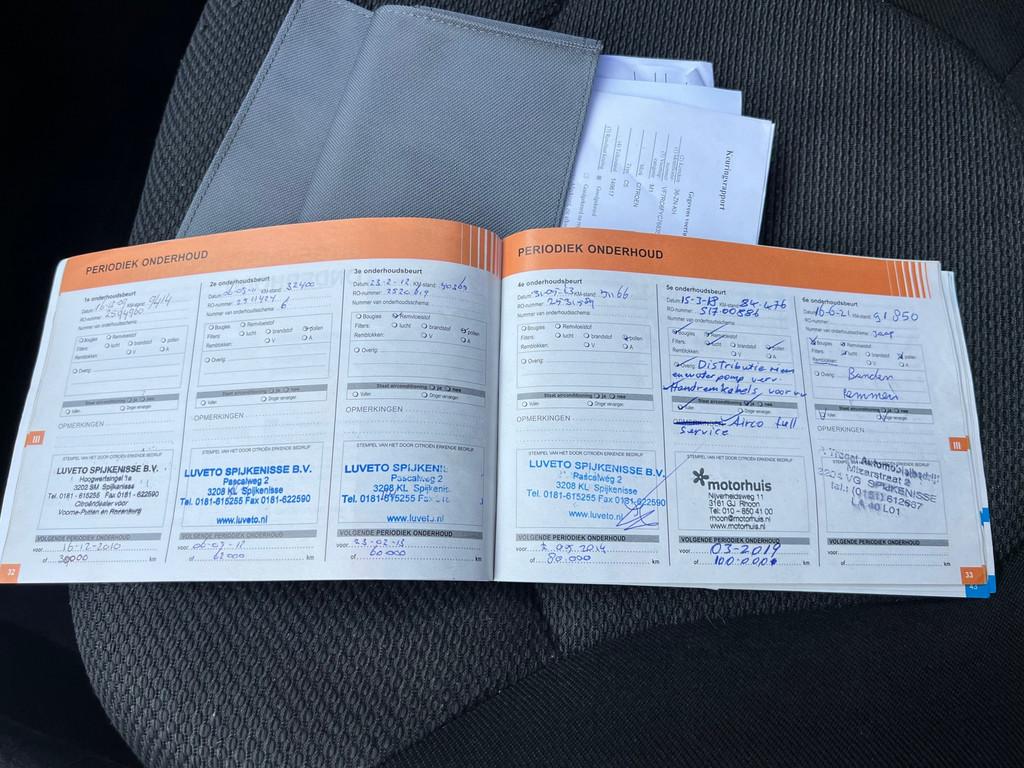 Keuringsrapport
CITROEN
M1
PERIODIEK ONDERHOUD
1e onderhoudsbeurt
Datum: KM-stand: 9414
RO-nummer: 2594960
Nummer van onderhoudsschema:
Bougies Remvloeistof
Filters: lucht brandstof pollen
Remblokken: V A
Overig:
Staat airconditioning ja nee
Vullen Droger vervangen
OPMERKINGEN
STEMPEL VAN HET DOOR CITROËN ERKENDE BEDRIJF
LUVETO SPIJKENISSE B.V.
Hoogwerfsingel 1a
3202 SM Spijkenisse
Tel. 0181 - 615255 Fax 0181 - 622590
Citroëndealer voor
Voorne-Putten en Rozenburg
VOLGENDE PERIODIEK ONDERHOUD
voor 16-12-2010
of 30000 km
32
2e onderhoudsbeurt
Datum: KM-stand: 32400
RO-nummer: 2511424
Nummer van onderhoudsschema: 6
Bougies Remvloeistof
Filters: lucht brandstof pollen
Remblokken: V A
Overig:
Staat airconditioning ja nee
Vullen Droger vervangen
OPMERKINGEN
STEMPEL VAN HET DOOR CITROËN ERKENDE BEDRIJF
LUVETO SPIJKENISSE B.V.
Pascalweg 2
3208 KL Spijkenisse
Tel. 0181-615255 Fax 0181-622590
www.luveto.nl
VOLGENDE PERIODIEK ONDERHOUD
voor
of 62000 km
3e onderhoudsbeurt
Datum: 23-2-12 KM-stand:
RO-nummer: 2520619
Nummer van onderhoudsschema:
Bougies Remvloeistof
Filters: lucht brandstof pollen
Remblokken: V A
Overig:
Staat airconditioning ja nee
Vullen Droger vervangen
OPMERKINGEN
STEMPEL VAN HET DOOR CITROËN ERKENDE BEDRIJF
LUVETO SPIJKENIS
Pascalweg 2
3208 KL Spijkenisse
Tel. 0181-615255 Fax
www.luveto.nl
VOLGENDE PERIODIEK ONDERHOUD
voor 23-02-13
of 60.000 km
PERIODIEK ONDERHOUD
4e onderhoudsbeurt
Datum: 31-05-13 KM-stand: 51166
RO-nummer:
Nummer van onderhoudsschema:
Bougies Remvloeistof
Filters: lucht brandstof pollen
Remblokken: V A
Overig:
Staat airconditioning ja nee
Vullen Droger vervangen
OPMERKINGEN
STEMPEL VAN HET DOOR CITROËN ERKENDE BEDRIJF
LUVETO SPIJKENISSE B.V.
Pascalweg 2
3208 KL Spijkenisse
Tel. 0181-615255 Fax 0181-622590
www.luveto.nl
VOLGENDE PERIODIEK ONDERHOUD
voor 05.2014
of 80.000 km
5e onderhoudsbeurt
Datum: 15-3-18 KM-stand: 84.476
RO-nummer: 51700886
Nummer van onderhoudsschema:
Bougies Remvloeistof
Filters: lucht brandstof pollen
Remblokken: V A
Overig: Distributie riem
en waterpomp verv
Handremkabels voor vv
Staat airconditioning ja nee
Vullen Droger vervangen
OPMERKINGEN Airco full
Service
STEMPEL VAN HET DOOR CITROËN ERKENDE BEDRIJF
motorhuis
Nijverheidsweg 11
3161 GJ Rhoon
Tel: 010 - 850 41 00
rhoon@motorhuis.nl
www.motorhuis.nl
VOLGENDE PERIODIEK ONDERHOUD
voor 03-2019
of 100.000 km
6e onderhoudsbeurt
Datum: 16-6-21 KM-stand: 91850
RO-nummer:
Nummer van onderhoudsschema: jaar
Bougies Remvloeistof
Filters: lucht brandstof pollen
Remblokken: V A
Overig: Banden
remmen
Staat airconditioning ja nee
Vullen Droger vervangen
OPMERKINGEN
STEMPEL VAN HET DOOR CITROËN ERKENDE BEDRIJF
Automobielbedrijf
2
3201 VG SPIJKENISSE
Tel.: (0181) 612667
VOLGENDE PERIODIEK ONDERHOUD
voor
of km
III
III
33
43